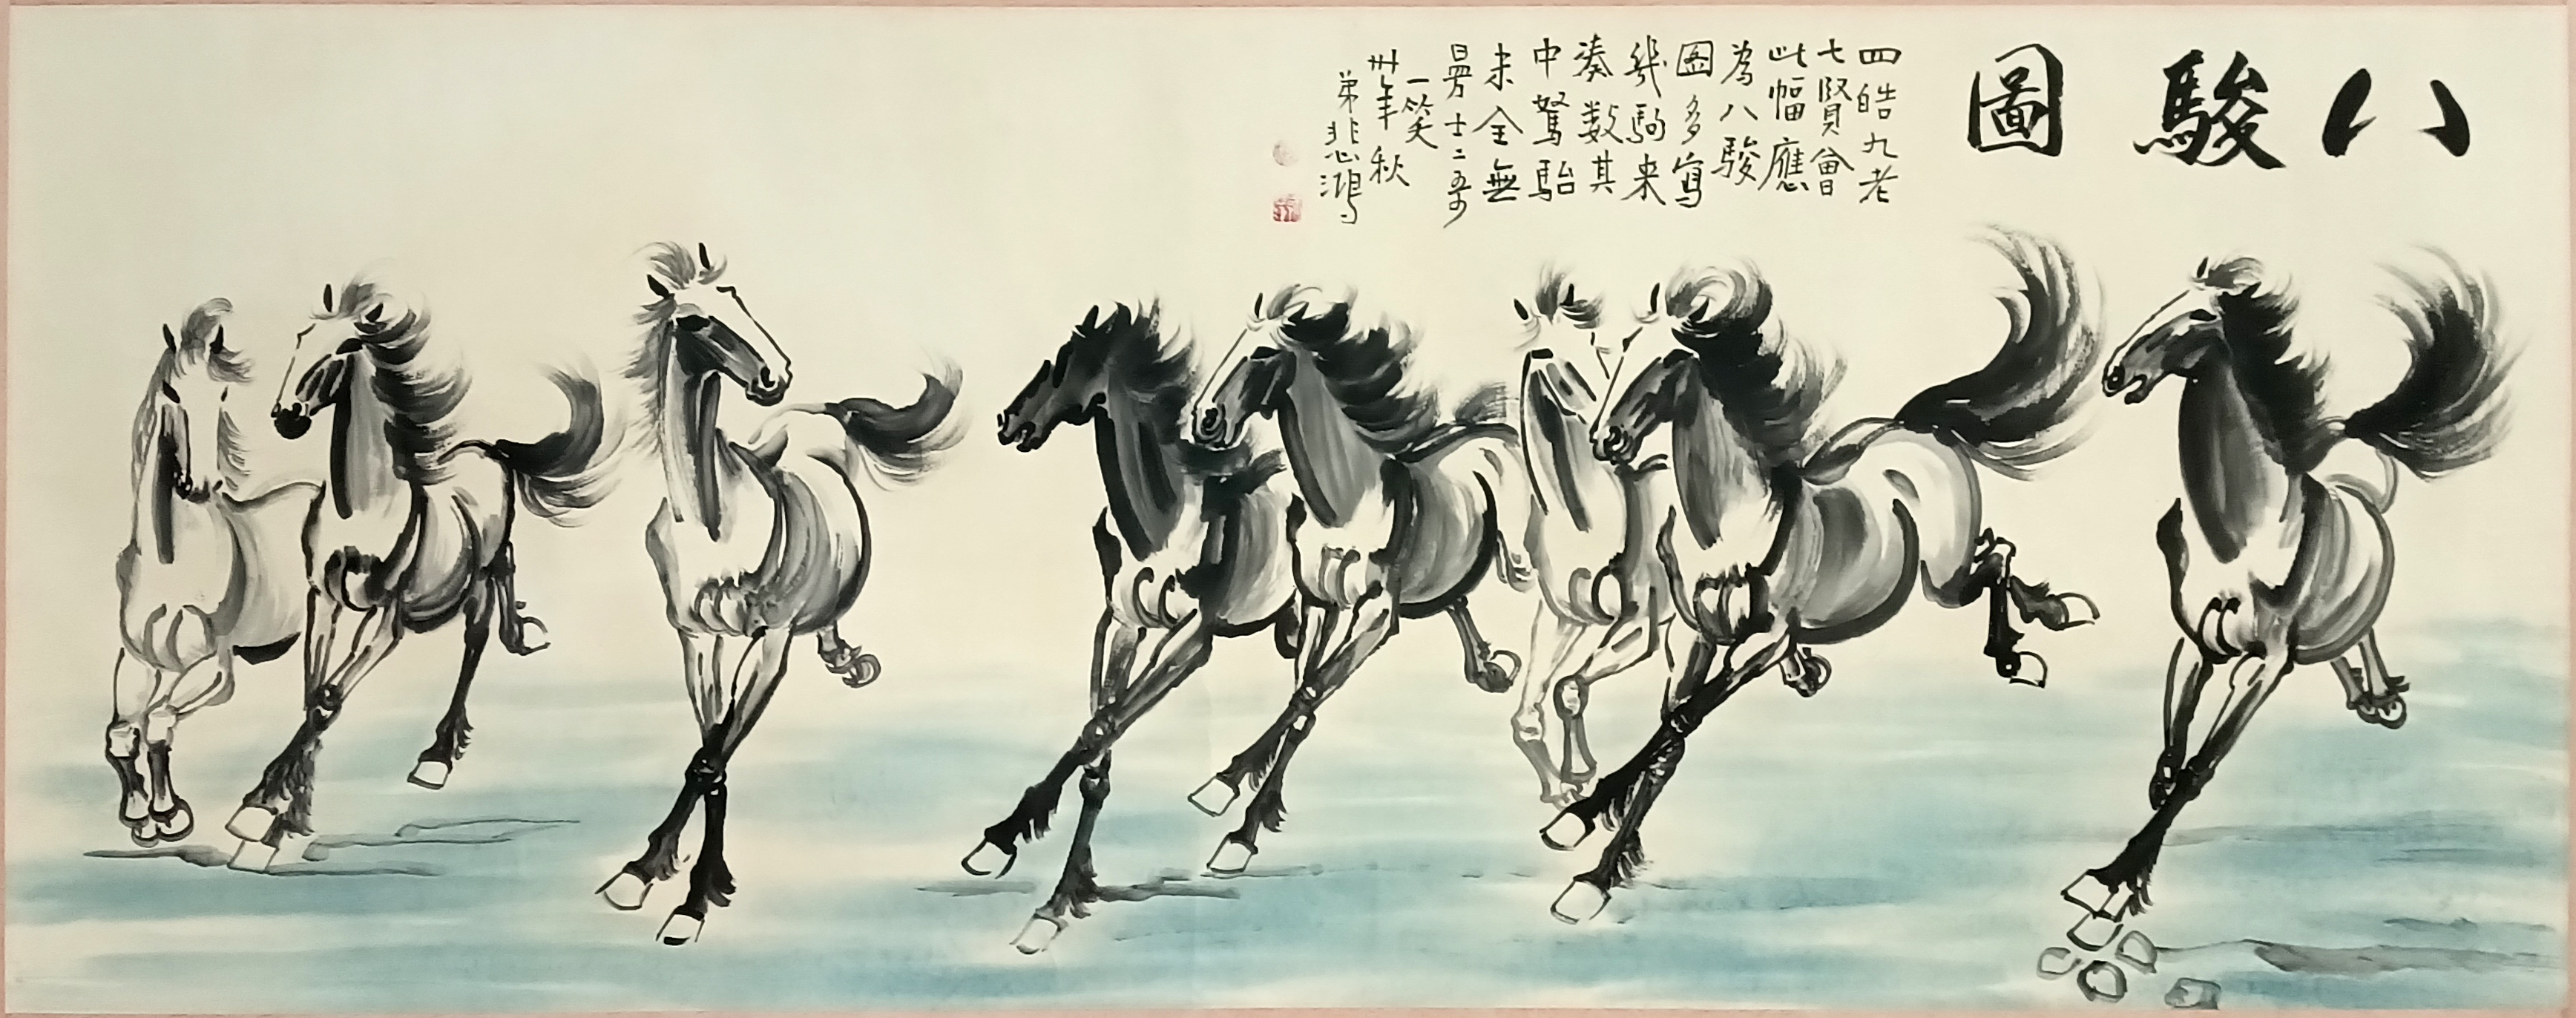 八駿圖
四皓九老
七賢會
此幅應
為八駿
圖多寫
幾駒来
凑數其
中駑駘
未全無
曼士二哥
一笑
卅年秋
弟悲鴻